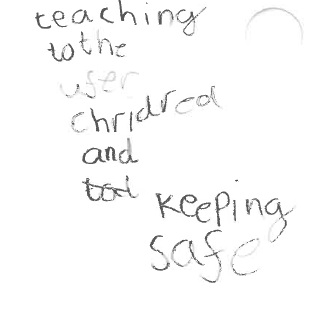 teaching
to the
user
chridred
and
keeping
safe